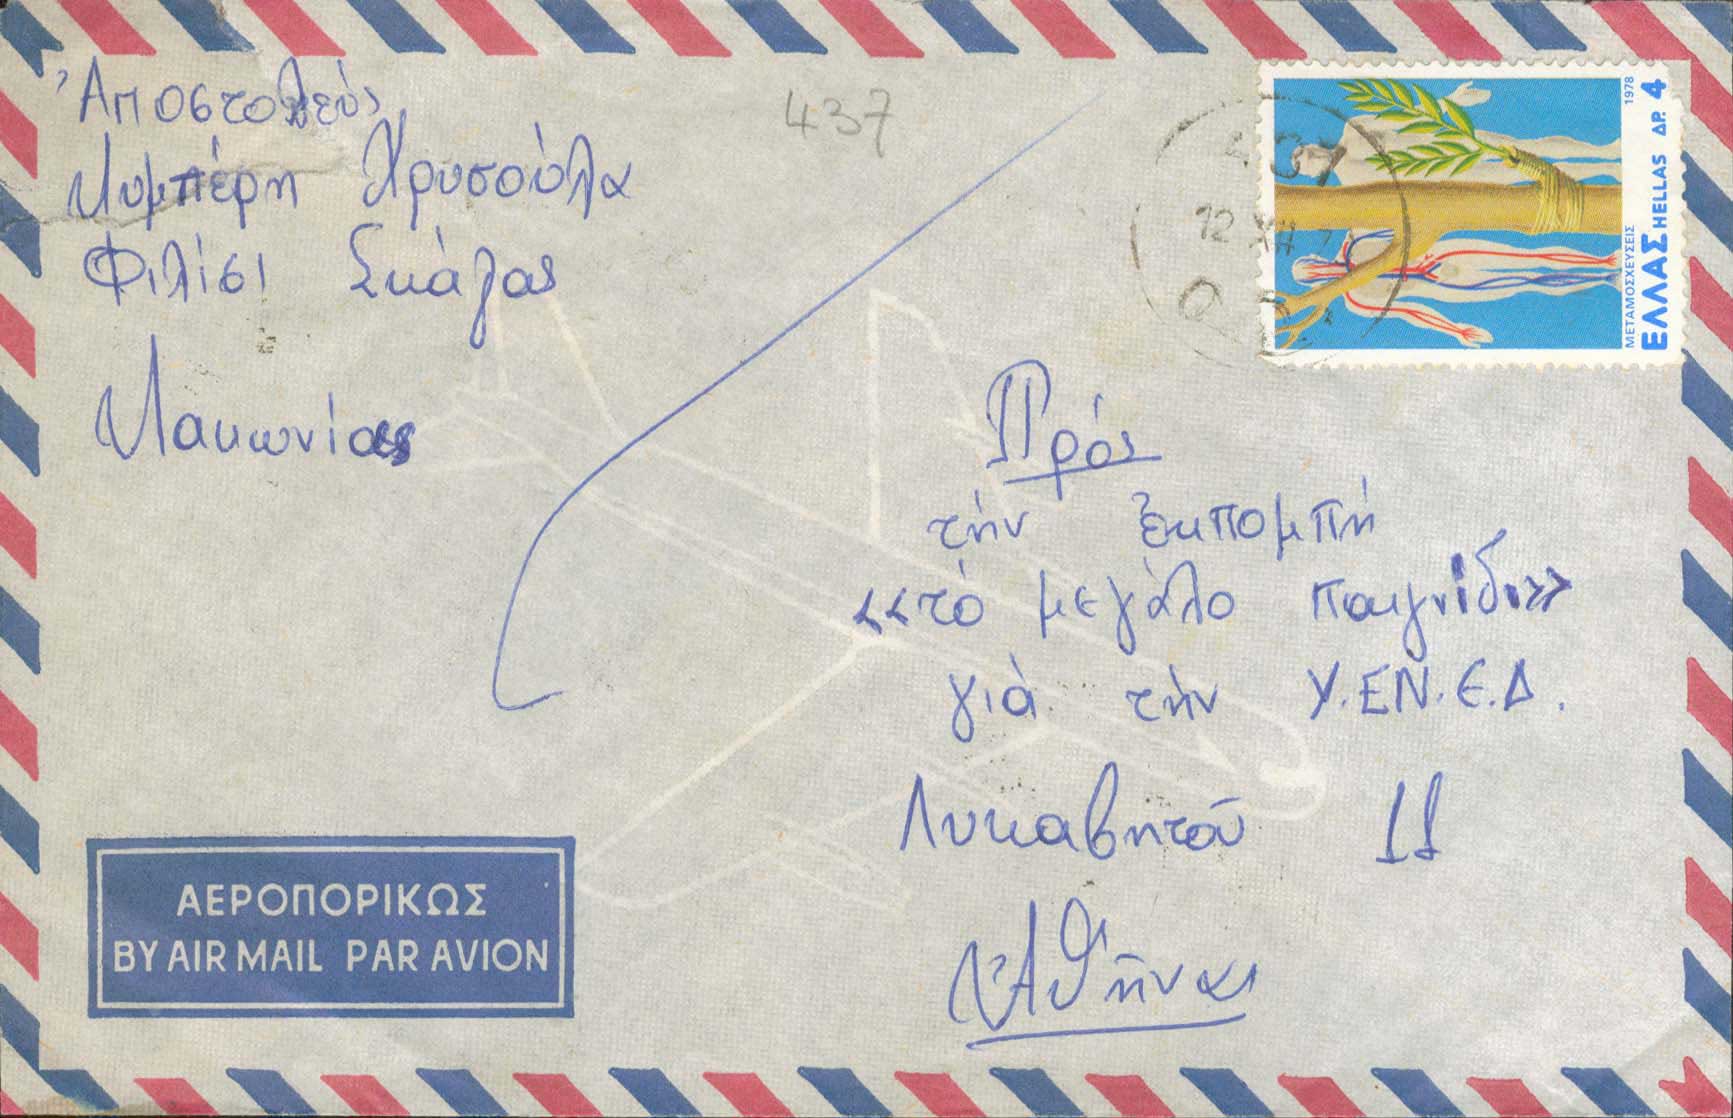 Ἀποστολεύς
Λυμπέρη Χρυσούλα
Φιλίσι Σκάλας
Λακωνίας
437
1978
ΕΛΛΑΣ HELLAS ΔΡ. 4
ΜΕΤΑΜΟΣΧΕΥΣΕΙΣ
12
Πρός
τήν ἐκπομπή
«τό μεγάλο παιγνίδι»
γιά τήν Υ.ΕΝ.Ε.Δ.
Λυκαβητοῦ 11
Ἀθῆναι
ΑΕΡΟΠΟΡΙΚΩΣ
BY AIR MAIL PAR AVION